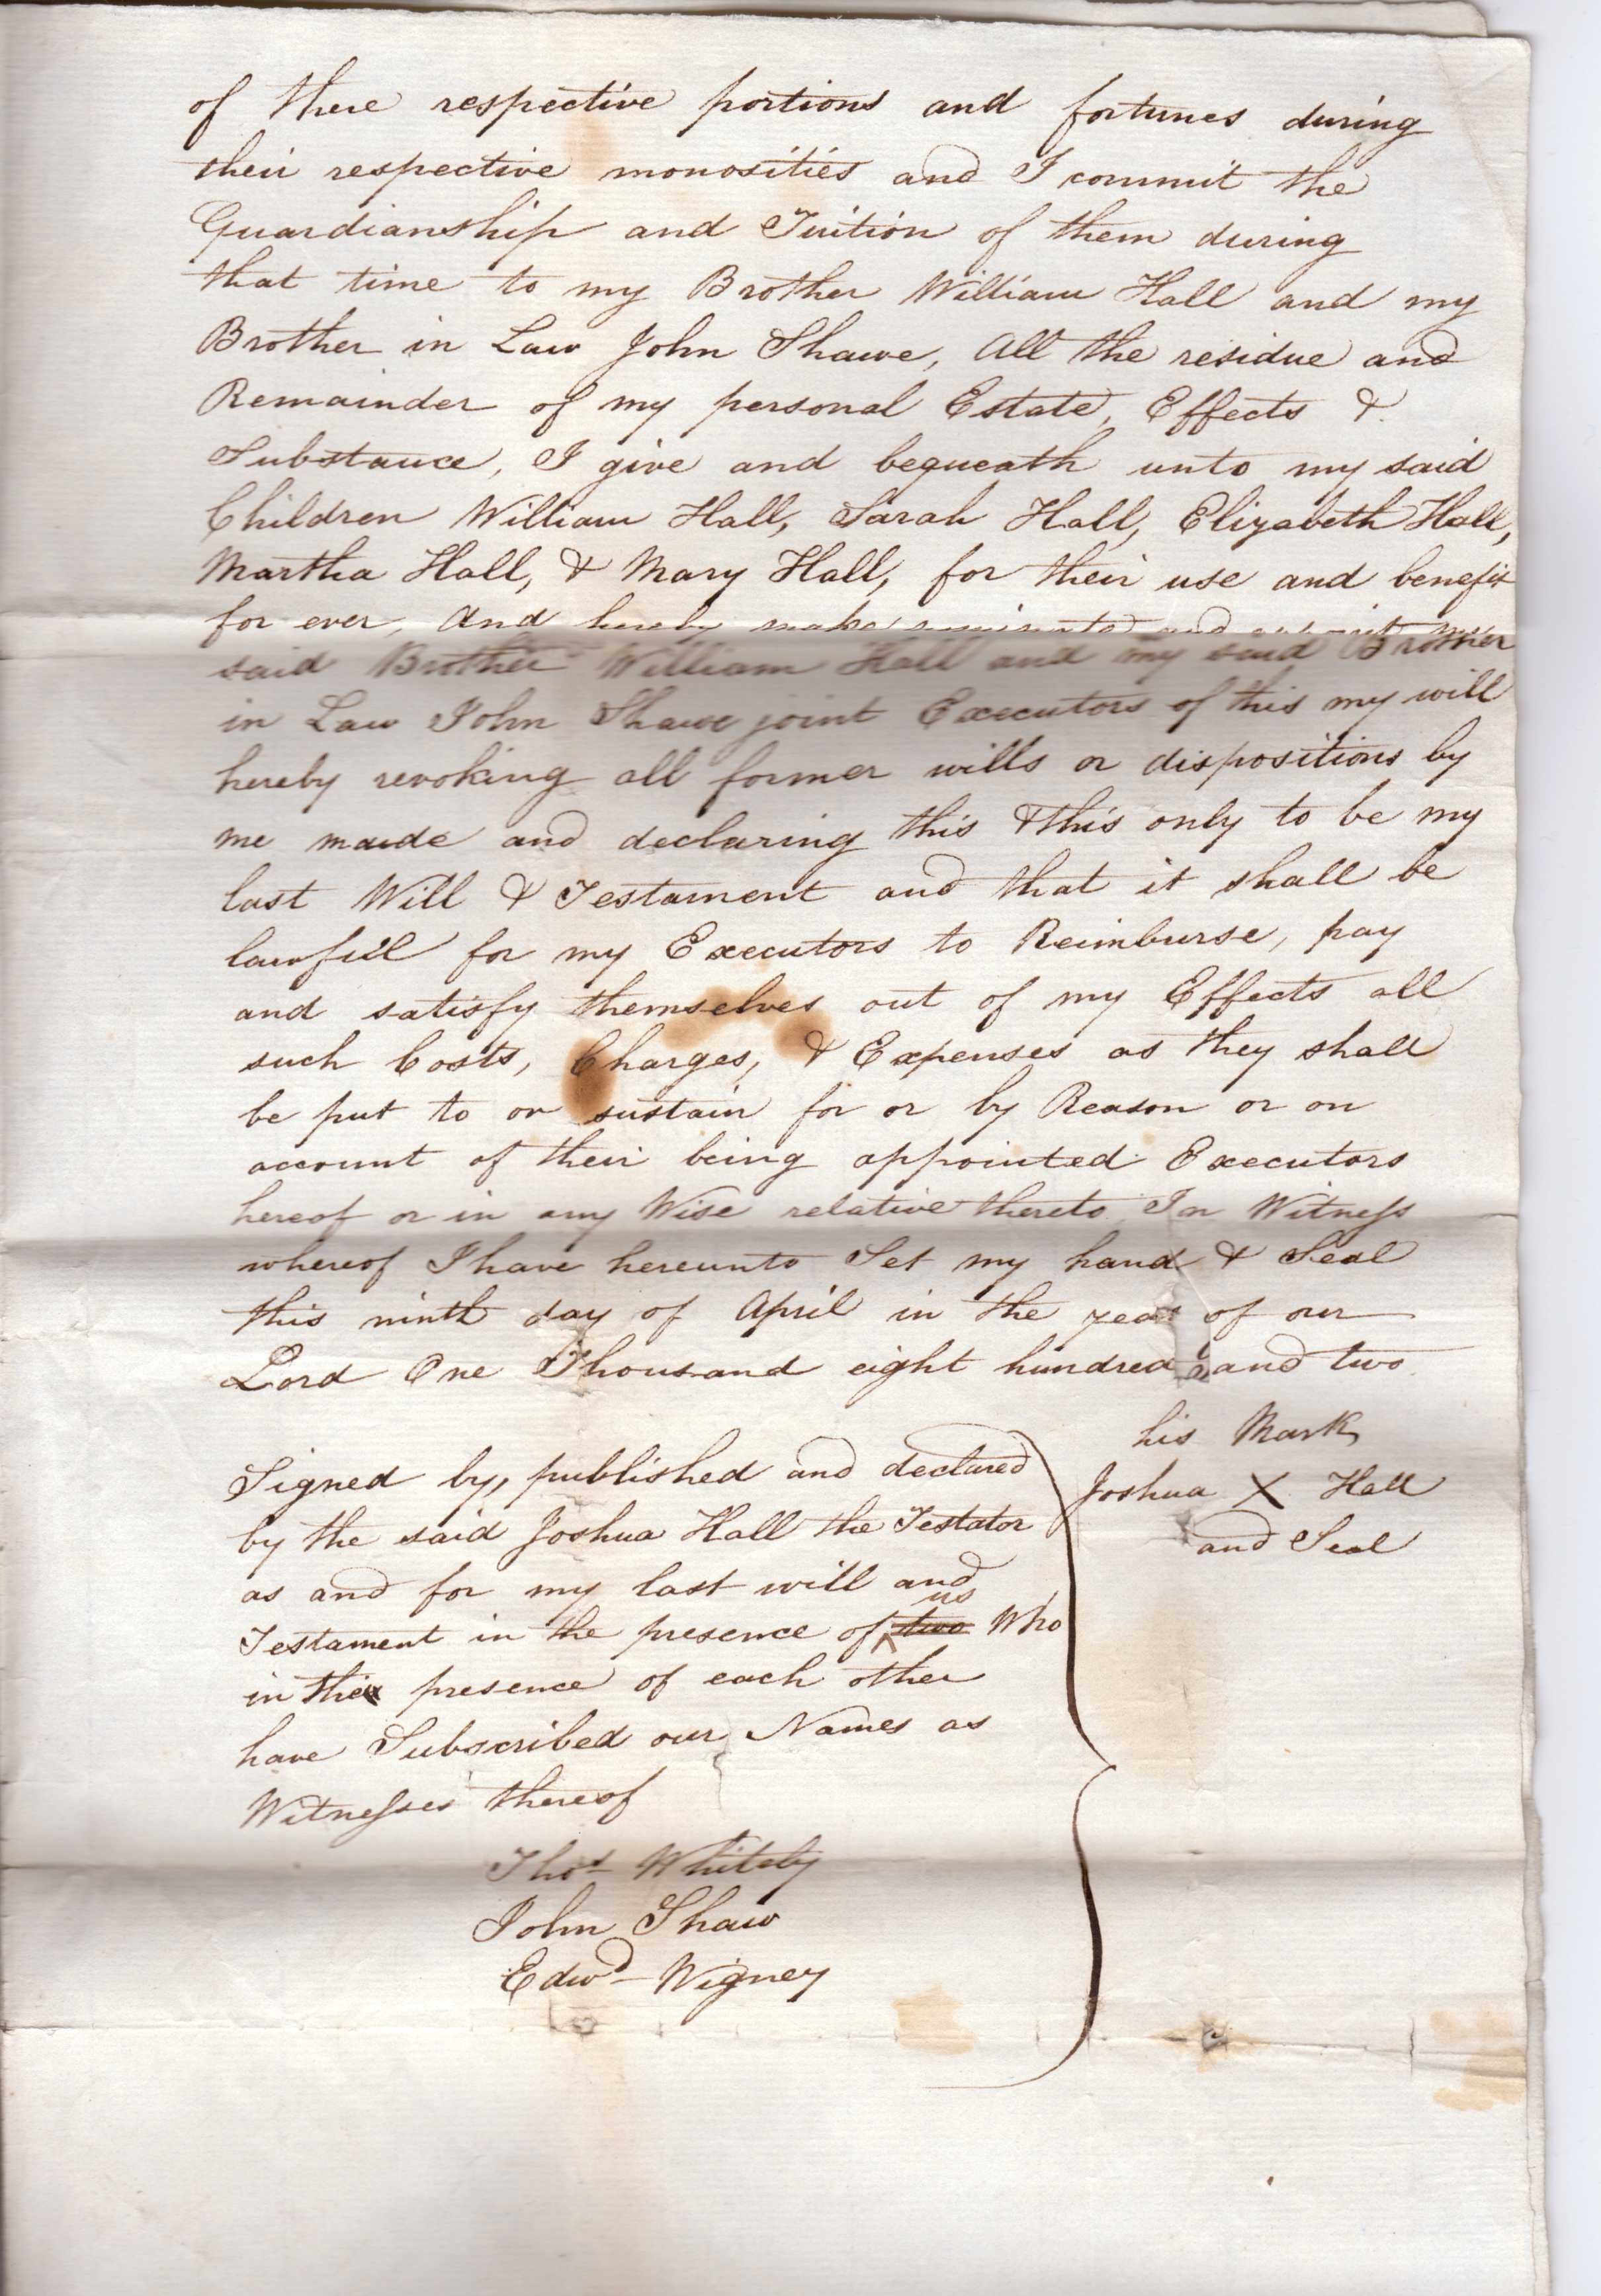 of there respective portions and fortunes during
their respective monosities and I commit the
Guardianship and Tuition of them during
that time to my Brother William Hall and my
Brother in Law John Shawe, All the residue and
Remainder of my personal Estate, Effects &
Substance, I give and bequeath unto my said
Children William Hall, Sarah Hall, Elizabeth Hall,
Martha Hall, & Mary Hall, for their use and benefit
for ever, And hereby make nominate and appoint my
said Brother William Hall and my said Brother
in Law John Shawe joint Executors of this my will
hereby revoking all former wills or dispositions by
me maide and declaring this & this only to be my
last Will & Testament and that it shall be
lawfull for my Executors to Reimburse, pay
and satisfy themselves out of my Effects all
such Costs, Charges, & Expenses as they shall
be put to or sustain for or by Reason or on
account of their being appointed Executors
hereof or in any Wise relative thereto In Witness
whereof I have hereunto Set my hand & Seal
this ninth day of April in the year of our
Lord One Thousand eight hundred and two.
his Mark
Joshua X Hall
and Seal
Signed by, published and declared
by the said Joshua Hall the Testator
as and for my last will and
Testament in the presence of us Who
in the presence of each other
have Subscribed our Names as
Witnesses thereof
Thos Whitely
John Shaw
Edwd Wigney